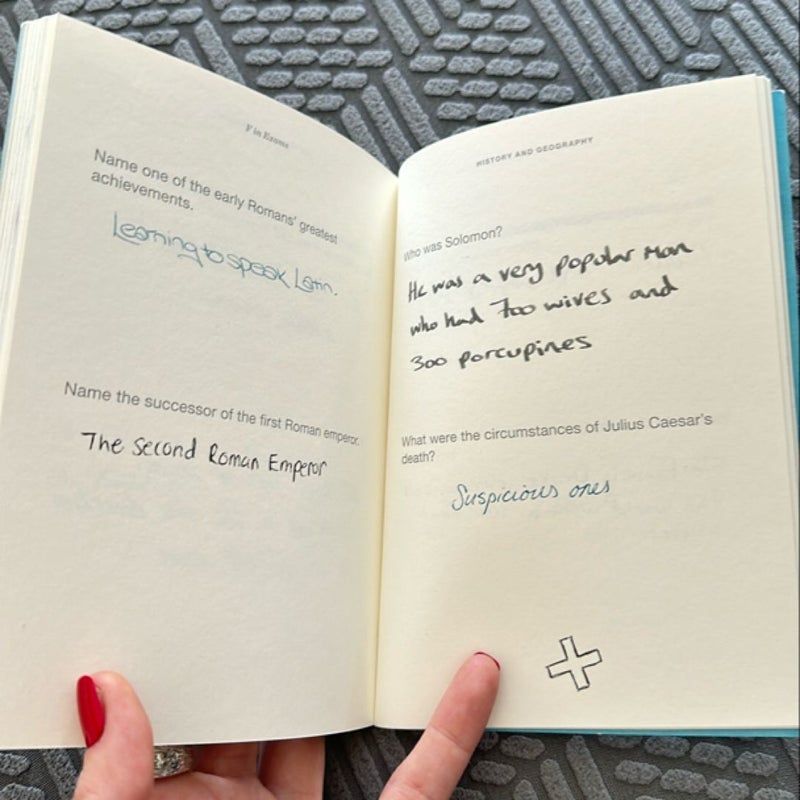 F in Exams
Name one of the early Romans' greatest
achievements.
Learning to speak Latin.
Name the successor of the first Roman emperor.
The Second Roman Emperor
HISTORY AND GEOGRAPHY
Who was Solomon?
He was a very popular man
who had 700 wives and
300 porcupines
What were the circumstances of Julius Caesar's
death?
Suspicious ones